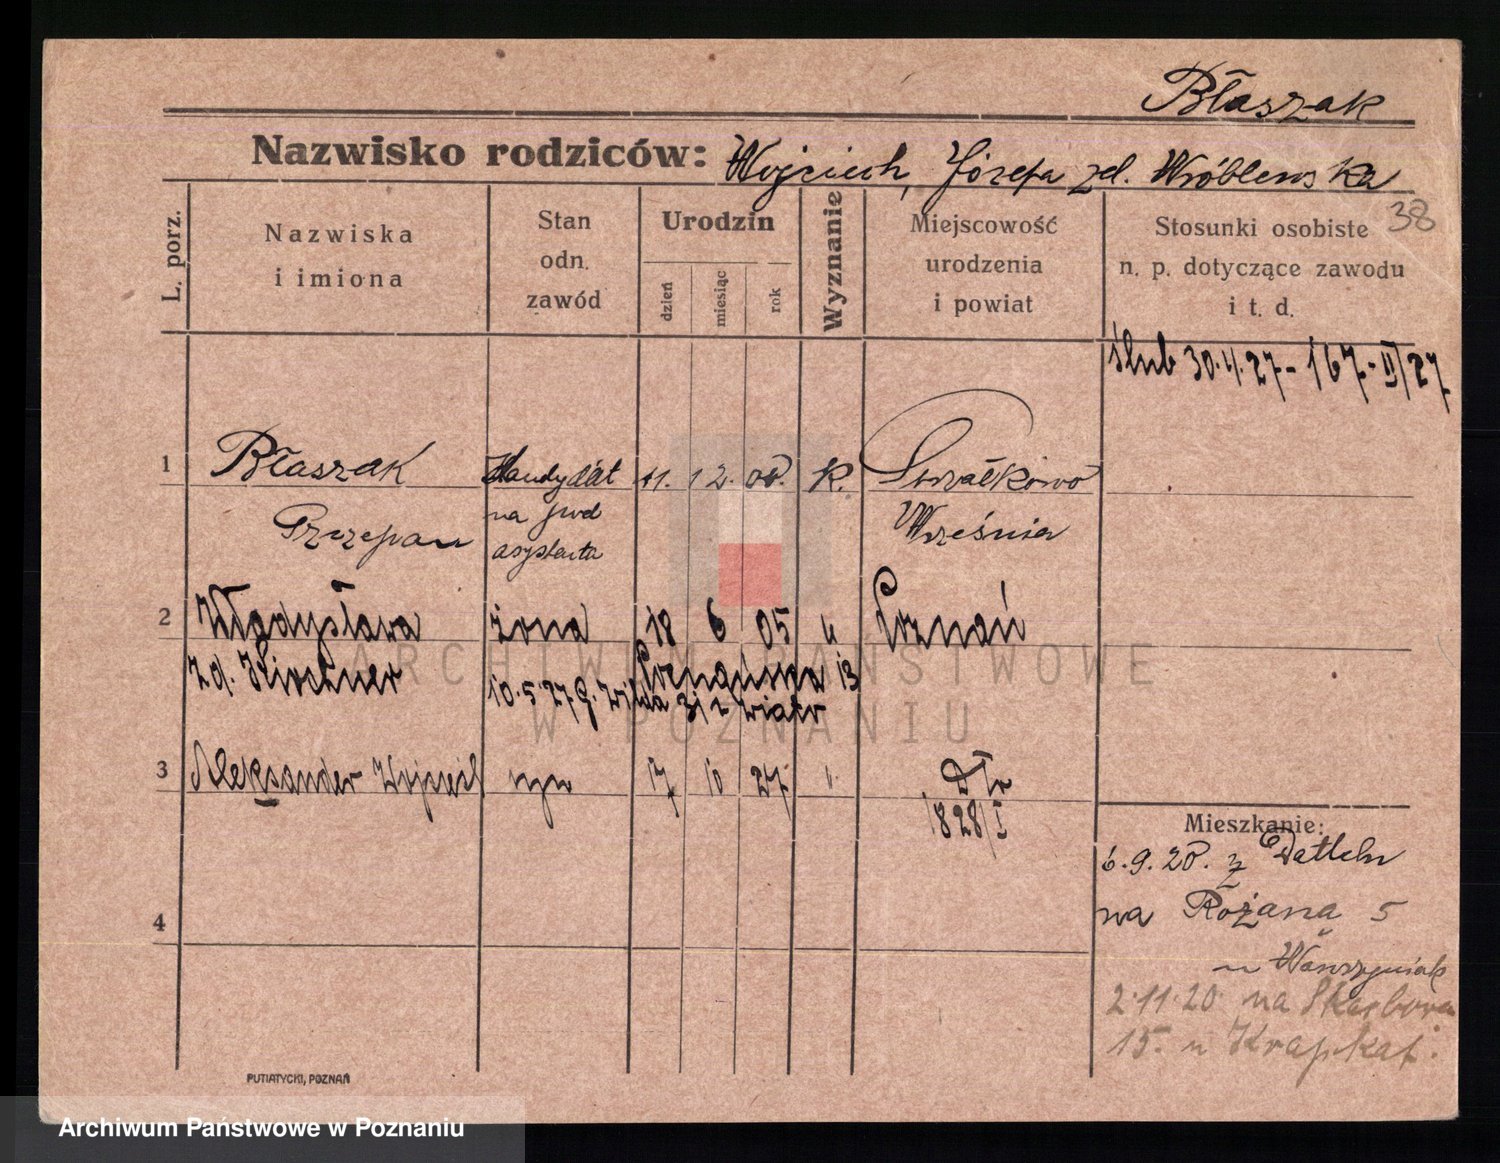 Błaszak
Nazwisko rodziców: Wojciech, Józefa zd. Wróblewska
38
L. porz.
Nazwiska
i imiona
Stan
odn.
zawód
Urodzin
dzień
miesiąc
rok
Wyznanie
Miejscowość
urodzenia
i powiat
Stosunki osobiste
n. p. dotyczące zawodu
i t. d.
ślub 30.4.27 - 167 - II/27
1 Błaszak Kandydat 11. 12. 00. k.
Szczepan na pod Września
asystenta
2 Władysława żona 18 6 05 k Poznań
zd. Kirchner Poznańska 13
10.5.27 G. Wilda 31 z
3 Aleksander Wojciech syn 17 10 27
1828/I
Mieszkanie:
6.9.20. z Datteln
na Różana 5
u Wawrzyniak
4
2.11.20 na Skarbowa
15. u
PUTIATYCKI, POZNAŃ
ARCHIWUM PAŃSTWOWE
W POZNANIU
Archiwum Państwowe w Poznaniu